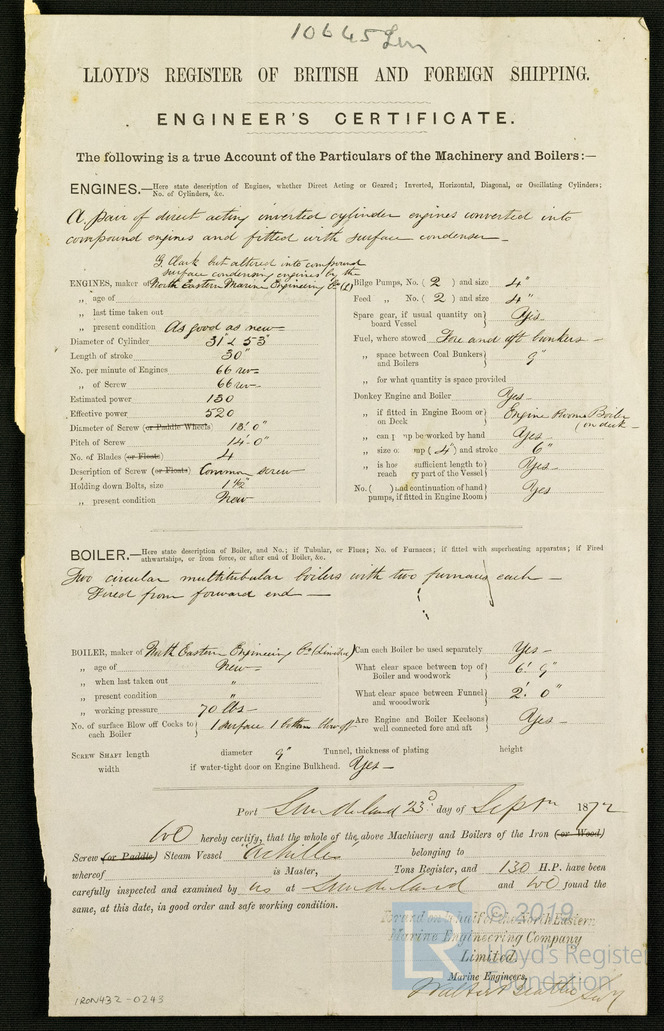 10645 Lon
LLOYD'S REGISTER OF BRITISH AND FOREIGN SHIPPING.
ENGINEER'S CERTIFICATE.
The following is a true Account of the Particulars of the Machinery and Boilers:—
ENGINES.—Here state description of Engines, whether Direct Acting or Geared; Inverted, Horizontal, Diagonal, or Oscillating Cylinders;
No. of Cylinders, &c.
A pair of direct acting inverted cylinder engines converted into
compound engines and fitted with surface condenser —
G. Clark but altered into compound
surface condensing engines by the
ENGINES, maker of North Eastern Marine Engineering Co (L)
„ age of
„ last time taken out
„ present condition As good as new
Diameter of Cylinder 31 & 53"
Length of stroke 30"
No. per minute of Engines 66 rev—
„ of Screw 66 rev—
Estimated power 130
Effective power 520
Diameter of Screw (or Paddle Wheels) 13'. 0"
Pitch of Screw 14'. 0"
No. of Blades (or Floats) 4
Description of Screw (or Floats) Common screw
Holding down Bolts, size 1 1/2"
„ present condition New
Bilge Pumps, No. ( 2 ) and size 4"
Feed „ No. ( 2 ) and size 4"
Spare gear, if usual quantity on board Vessel Yes—
Fuel, where stowed Fore and aft bunkers —
„ space between Coal Bunkers and Boilers 9"
„ for what quantity is space provided
Donkey Engine and Boiler Yes—
„ if fitted in Engine Room or on Deck Engine Room Boiler (on deck —
„ can p up be worked by hand Yes—
„ size o mp ( 4") and stroke 6"
„ is hos sufficient length to reach ry part of the Vessel Yes—
No. ( ) and continuation of hand pumps, if fitted in Engine Room Yes
BOILER.—Here state description of Boiler, and No.; if Tubular, or Flues; No. of Furnaces; if fitted with superheating apparatus; if Fired
athwartships, or from force, or after end of Boiler, &c.
Two circular multitubular boilers with two furnaces each —
Fired from forward end —
BOILER, maker of North Eastern Engineering Co (Limited)
„ age of New—
„ when last taken out "
„ present condition "
„ working pressure 70 lbs—
No. of surface Blow off Cocks to each Boiler 1 surface 1 bottom blow off
Can each Boiler be used separately Yes—
What clear space between top of Boiler and woodwork 6'. 9"
What clear space between Funnel and wooodwork 2'. 0"
Are Engine and Boiler Keelsons well connected fore and aft Yes—
SCREW SHAFT length diameter 9" Tunnel, thickness of plating height
width if water-tight door on Engine Bulkhead. Yes—
Port Sunderland 23d. day of Septr 1872
We hereby certify, that the whole of the above Machinery and Boilers of the Iron (or Wood)
Screw (or Paddle) Steam Vessel "Achilles" belonging to
whereof is Master, Tons Register, and 130 H.P. have been
carefully inspected and examined by us at Sunderland and We found the
same, at this date, in good order and safe working condition.
For and on behalf of the North Eastern
Marine Engineering Company
Limited.
Marine Engineers,
IRON432-0243
© 2019
LR
Lloyd's Register
Foundation